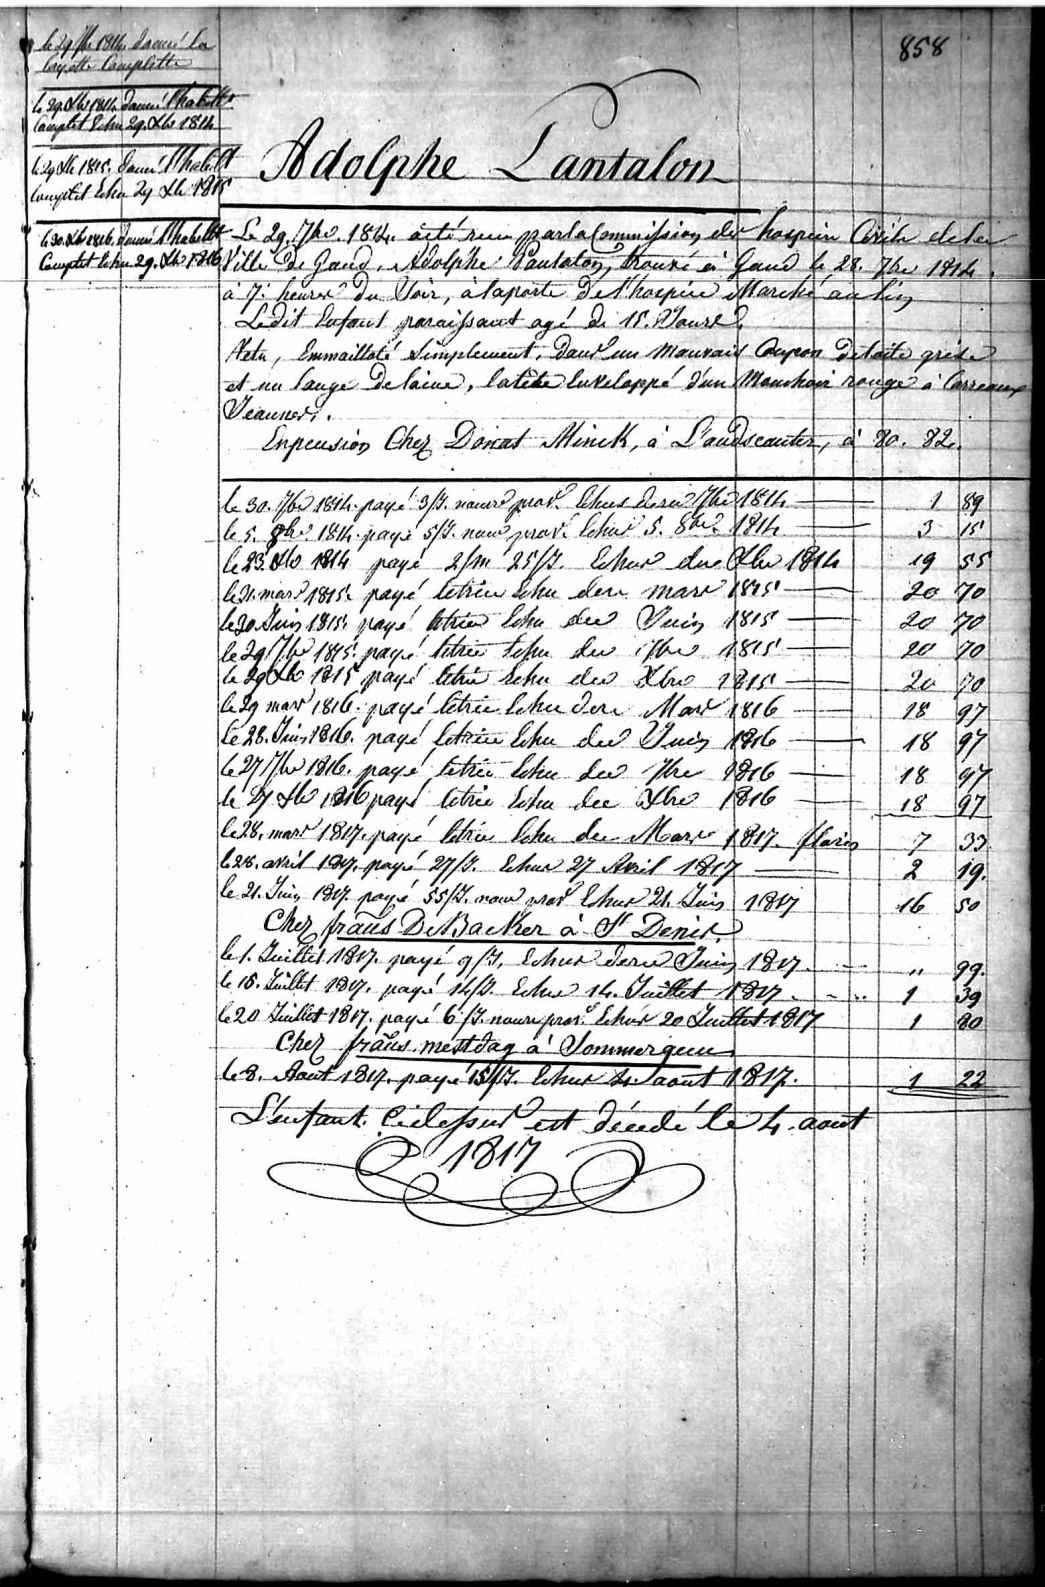 858
le 29 7bre 1814 donné la
layette Complette
le 29. Xbre 1814 donné l'habillt
Complet Echu 29. Xbre 1814
le 29 Xbre 1815. donné l'habillt
Complet Echu 29 Xbre 1815
le 30. Xbre 1816. donné l'habillt
Complet Echu 29. Xbre 1816
Adolphe Pantalon
Le 29. 7bre. 1814. a été reçu par la Commission des hospices Civils de la
Ville de Gand, Adolphe Pantalon, trouvé à Gand le 28. 7bre 1814.
à 7. heures du Soir, à la porte de l'hospice Marché au lin
Ledit Enfant paraissant agé de 15. Jours.
Vetu, Emmailloté Simplement, dans un mauvais Coupon de toile grise
et un lange de laine, la tête Enveloppé d'un Mouchoir rouge à Carreaux
Jeaunes.
Enpension Chez Donat Minck, à L'andscauter, à 80. 82.
le 30. 7bre 1814. payé 3/J. nourre prove Echus dernr 7bre 1814 1 89
le 5. 8bre 1814. payé 5/J. nourre prove Echus 5. 8bre 1814 3 15
le 23. Xbre 1814 payé 2/m 25/J. Echus der Xbre 1814 19 55
le 21. mars 1815. payé letrier Echu dere mars 1815 20 70
le 20 Juin 1815. payé letrier Echu der Juin 1815 20 70
le 29 7bre 1815. payé letrie Echu der 7bre 1815 20 70
le 29 Xbre 1815 payé letrie echu der Xbre 1815 20 70
le 29 mars 1816. payé letrie Echu dere Mars 1816 18 97
le 28. Juin 1816. payé letrie Echu der Juin 1816 18 97
le 27 7bre 1816. payé letrie Echu der 7bre 1816 18 97
le 27 Xbre 1816 payé letrie Echu der Xbre 1816 18 97
le 28. mars 1817. payé letrie Echu der Mars 1817. florins 7 33
le 28. avril 1817. payé 27/J. Echus 27 Avril 1817 2 19.
le 21. Juin 1817. payé 55/J. nour prove Echus 21. Juin 1817 16 50
Chez frans De Backer à St Denis.
le 1. Juillet 1817. payé 9/J. Echus dere Juin 1817. " 99.
le 15. Juillet 1817. payé 14/J. Echus 14. Juillet 1817. 1 39
le 20 Juillet 1817. payé 6/J. nourre prove Echus 20 Juillet 1817 1 80
Chez frans mestdag à Sommergem
le 8. Aout 1817. payé 15/J. Echus 4. aout 1817. 1 22
L'enfant Cidessus est décedé le 4. aout
1817